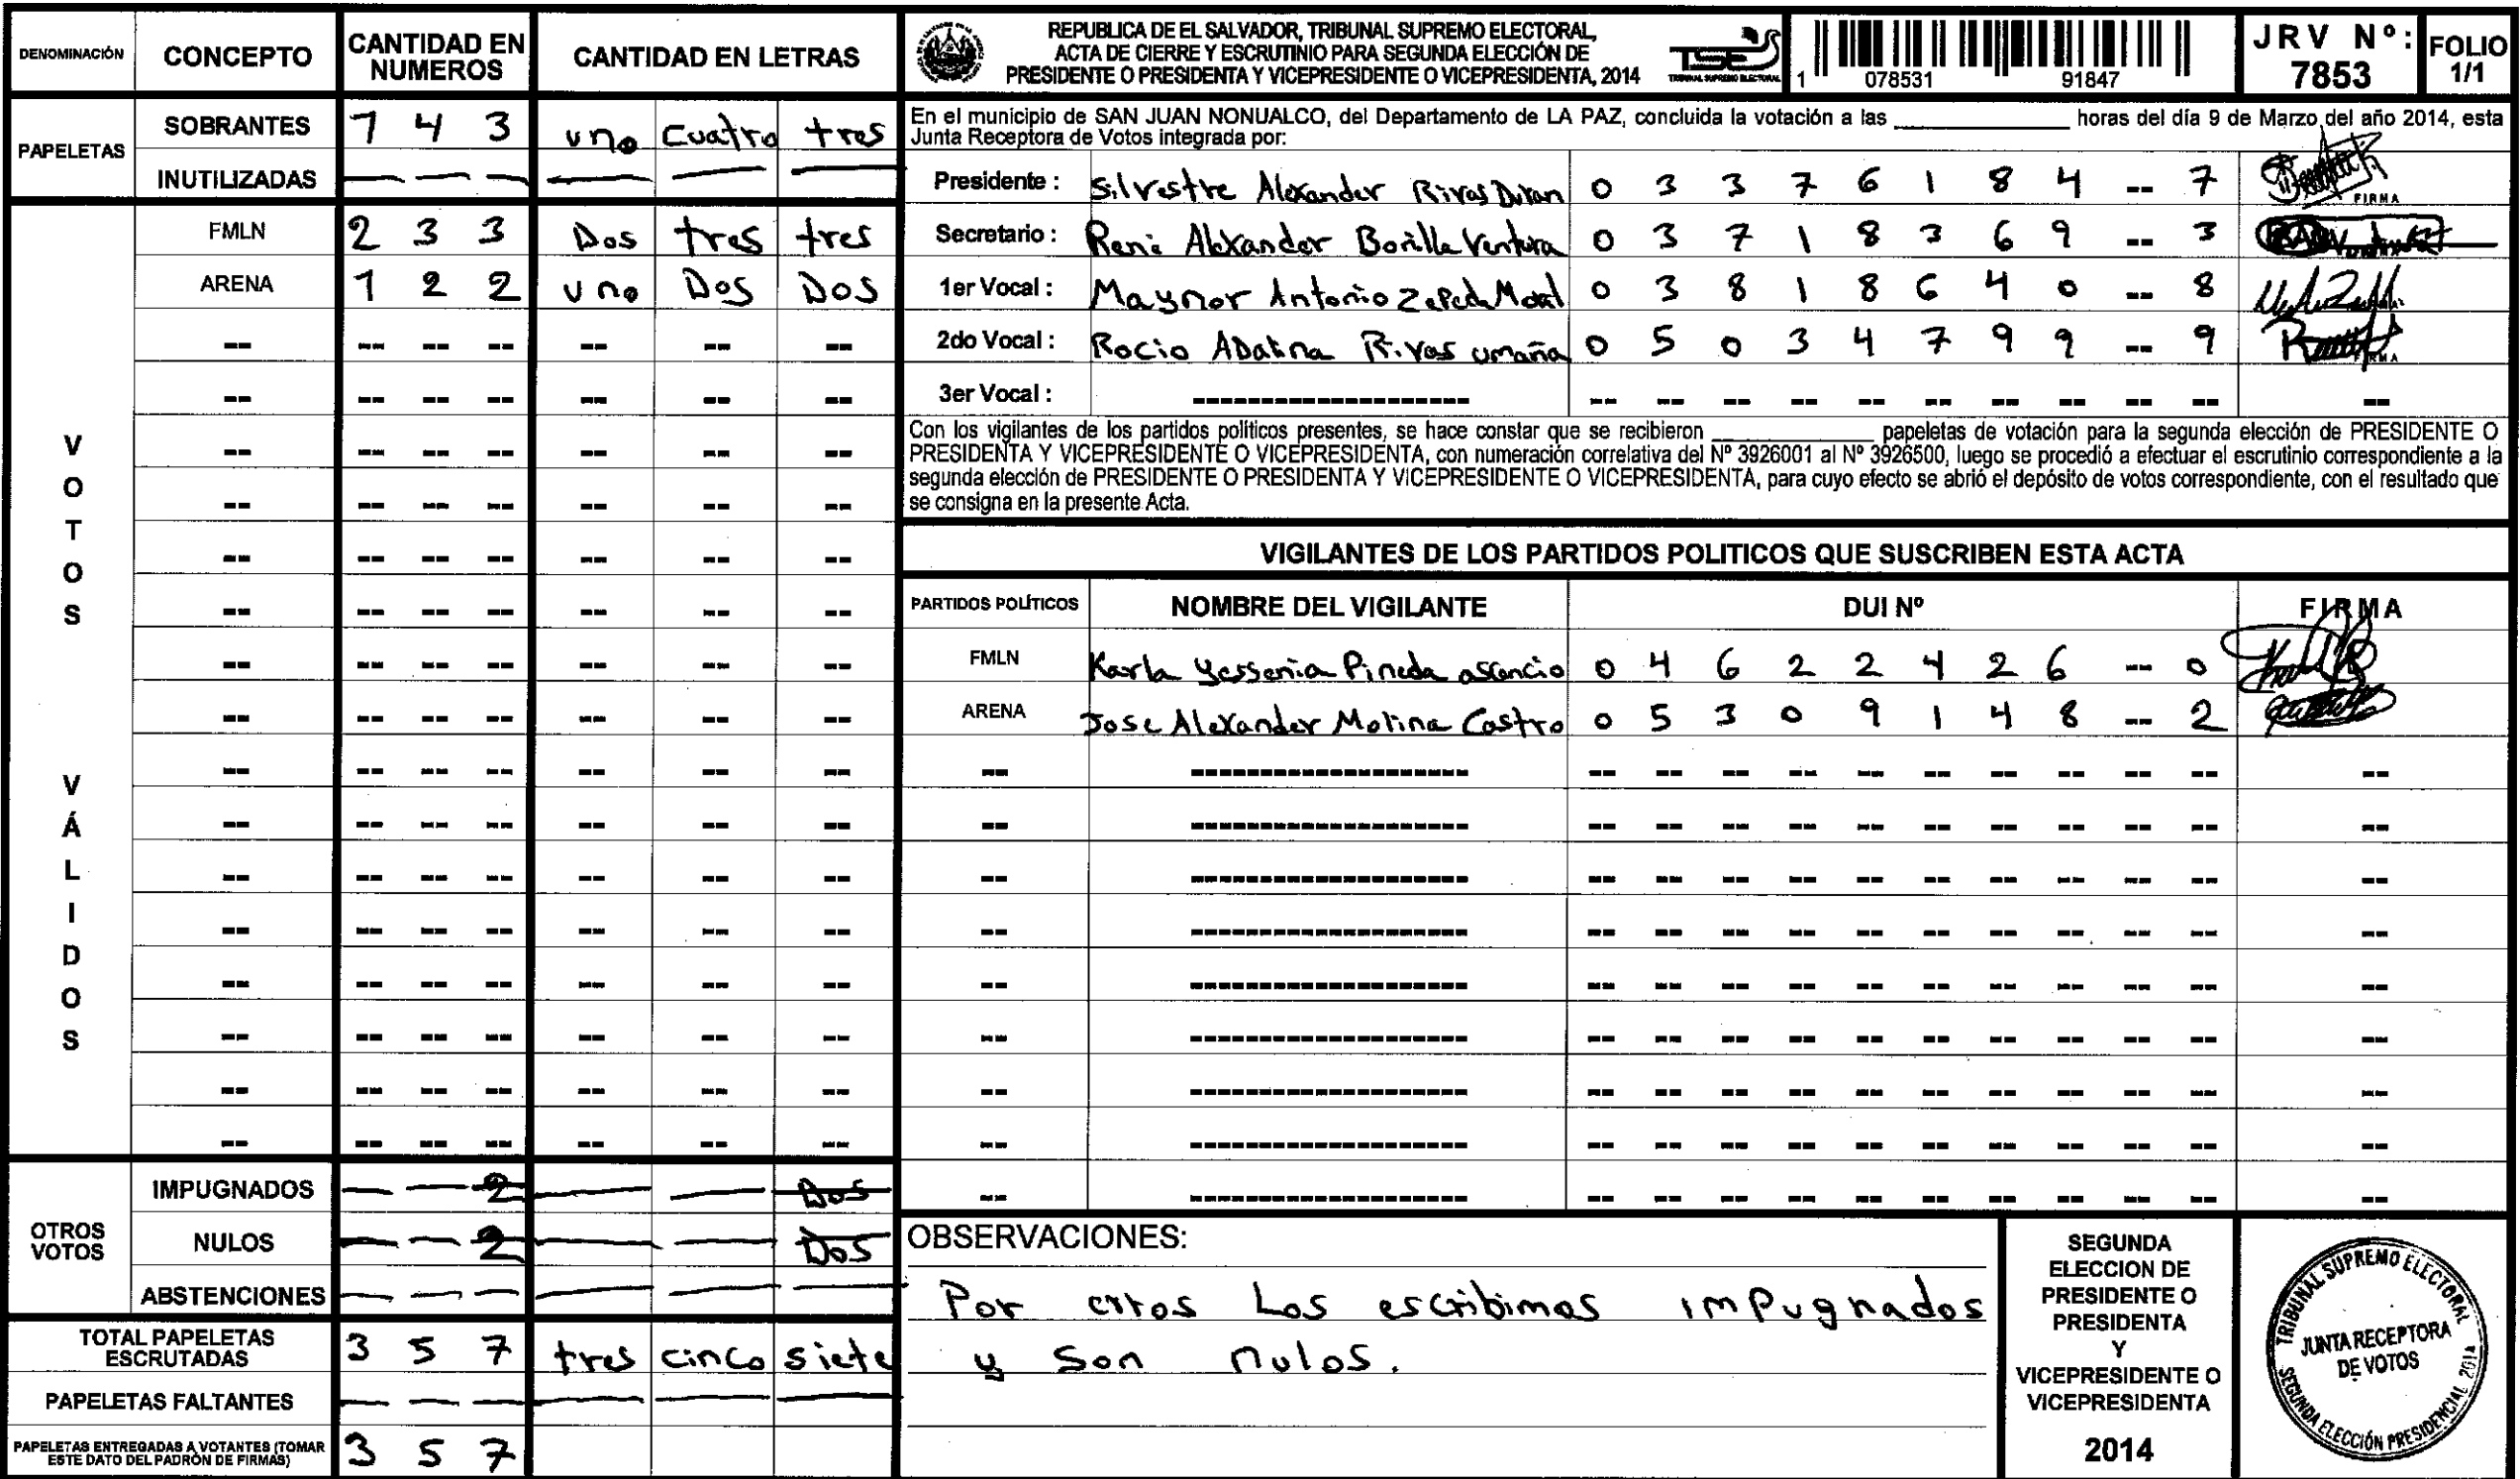 DENOMINACIÓN CONCEPTO CANTIDAD EN NUMEROS CANTIDAD EN LETRAS
PAPELETAS
SOBRANTES 1 4 3 uno cuatro tres
INUTILIZADAS — — — — — —
VOTOS VÁLIDOS
FMLN 2 3 3 Dos tres tres
ARENA 1 2 2 uno Dos Dos
OTROS VOTOS
IMPUGNADOS — — 2 — — Dos
NULOS — — 2 — — Dos
ABSTENCIONES — — — — — —
TOTAL PAPELETAS ESCRUTADAS 3 5 7 tres cinco siete
PAPELETAS FALTANTES — — — — — —
PAPELETAS ENTREGADAS A VOTANTES (TOMAR ESTE DATO DEL PADRÓN DE FIRMAS) 3 5 7
REPUBLICA DE EL SALVADOR, TRIBUNAL SUPREMO ELECTORAL,
ACTA DE CIERRE Y ESCRUTINIO PARA SEGUNDA ELECCIÓN DE
PRESIDENTE O PRESIDENTA Y VICEPRESIDENTE O VICEPRESIDENTA, 2014
TSE
TRIBUNAL SUPREMO ELECTORAL
1 078531 91847
JRV Nº: 7853
FOLIO 1/1
En el municipio de SAN JUAN NONUALCO, del Departamento de LA PAZ, concluida la votación a las ____________ horas del día 9 de Marzo del año 2014, esta
Junta Receptora de Votos integrada por:
Presidente : Silvestre Alexander Rivas Duran 0 3 3 7 6 1 8 4 -- 7 FIRMA
Secretario : Rene Alexander Bonilla Ventura 0 3 7 1 8 3 6 9 -- 3
1er Vocal : Maynor Antonio Zepeda 0 3 8 1 8 6 4 0 -- 8
2do Vocal : Rocio Rivas umaña 0 5 0 3 4 7 9 9 -- 9 FIRMA
3er Vocal :
Con los vigilantes de los partidos políticos presentes, se hace constar que se recibieron ____________ papeletas de votación para la segunda elección de PRESIDENTE O
PRESIDENTA Y VICEPRESIDENTE O VICEPRESIDENTA, con numeración correlativa del Nº 3926001 al Nº 3926500, luego se procedió a efectuar el escrutinio correspondiente a la
segunda elección de PRESIDENTE O PRESIDENTA Y VICEPRESIDENTE O VICEPRESIDENTA, para cuyo efecto se abrió el depósito de votos correspondiente, con el resultado que
se consigna en la presente Acta.
VIGILANTES DE LOS PARTIDOS POLITICOS QUE SUSCRIBEN ESTA ACTA
PARTIDOS POLÍTICOS NOMBRE DEL VIGILANTE DUI Nº FIRMA
FMLN Karla Yessenia Pineda ascencio 0 4 6 2 2 4 2 6 -- 0
ARENA Jose Alexander Molina Castro 0 5 3 0 9 1 4 8 -- 2
OBSERVACIONES:
Por erros Los escribimos impugnados
y son nulos.
SEGUNDA
ELECCION DE
PRESIDENTE O
PRESIDENTA
Y
VICEPRESIDENTE O
VICEPRESIDENTA
2014
TRIBUNAL SUPREMO ELECTORAL
JUNTA RECEPTORA
DE VOTOS
SEGUNDA ELECCIÓN PRESIDENCIAL 2014